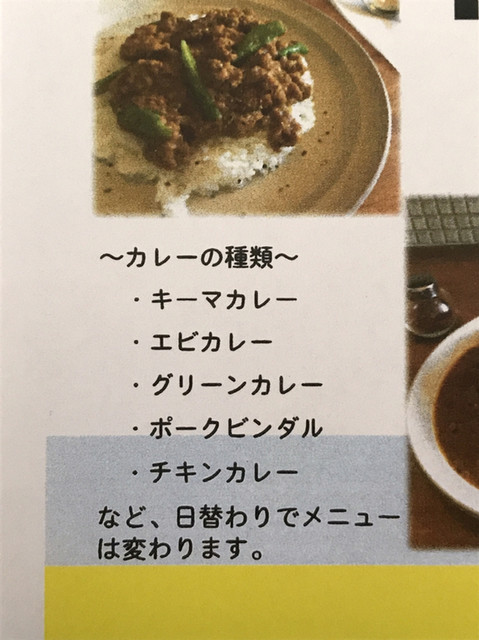 ～カレーの種類～
・キーマカレー
・エビカレー
・グリーンカレー
・ポークビンダル
・チキンカレー
など、日替わりでメニュー
は変わります。